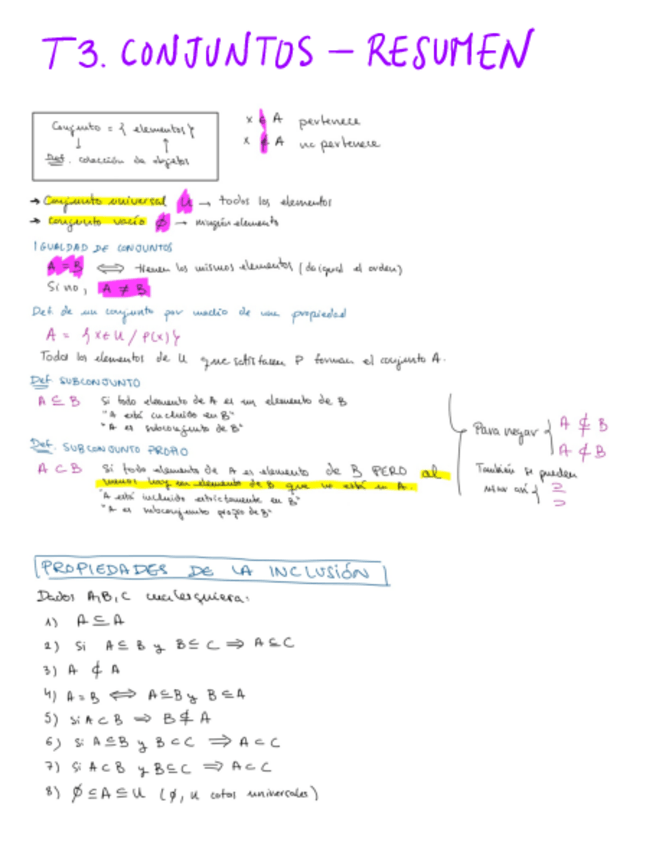 T3. CONJUNTOS – RESUMEN
Conjunto = { elementos }
Def. colección de objetos
x ∈ A pertenece
x ∉ A no pertenece
→ Conjunto universal U → todos los elementos
→ conjunto vacío ∅ → ningún elemento
IGUALDAD DE CONJUNTOS
A = B ⟺ tienen los mismos elementos (da igual el orden)
Si no, A ≠ B
Def. de un conjunto por medio de una propiedad
A = { x ∈ U / P(x) }
Todos los elementos de U que satisfacen P forman el conjunto A.
Def SUBCONJUNTO
A ⊆ B Si todo elemento de A es un elemento de B
"A está incluido en B"
"A es subconjunto de B"
Def. SUBCONJUNTO PROPIO
A ⊂ B Si todo elemento de A es elemento de B PERO al
menos hay un elemento de B que no está en A.
"A está incluido estrictamente en B"
"A es subconjunto propio de B"
Para negar { A ⊈ B
A ⊄ B
También se pueden
usar así { ⊇
⊃
PROPIEDADES DE LA INCLUSIÓN
Dados A, B, C cualesquiera:
1) A ⊆ A
2) Si A ⊆ B y B ⊆ C ⟹ A ⊆ C
3) A ⊄ A
4) A = B ⟺ A ⊆ B y B ⊆ A
5) Si A ⊂ B ⟹ B ⊈ A
6) Si A ⊆ B y B ⊂ C ⟹ A ⊂ C
7) Si A ⊂ B y B ⊆ C ⟹ A ⊂ C
8) ∅ ⊆ A ⊆ U (∅, U cotas universales)